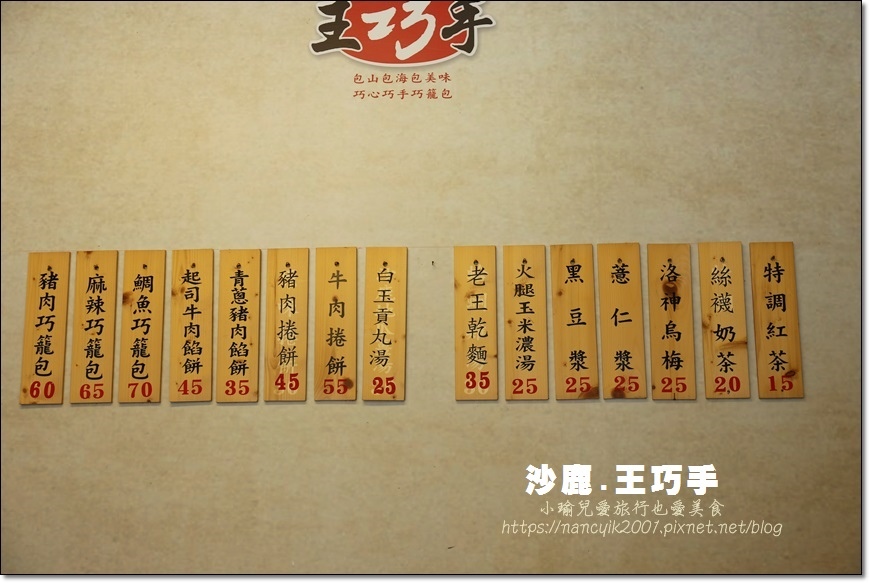 王巧手
包山包海包美味
巧心巧手巧籠包
豬肉巧籠包 60
麻辣巧籠包 65
鯛魚巧籠包 70
起司牛肉餡餅 45
青蔥豬肉餡餅 35
豬肉捲餅 45
牛肉捲餅 55
白玉貢丸湯 25
老王乾麵 35
火腿玉米濃湯 25
黑豆漿 25
薏仁漿 25
洛神烏梅 25
絲襪奶茶 20
特調紅茶 15
沙鹿.王巧手
小瑜兒愛旅行也愛美食
https://nancyik2001.pixnet.net/blog